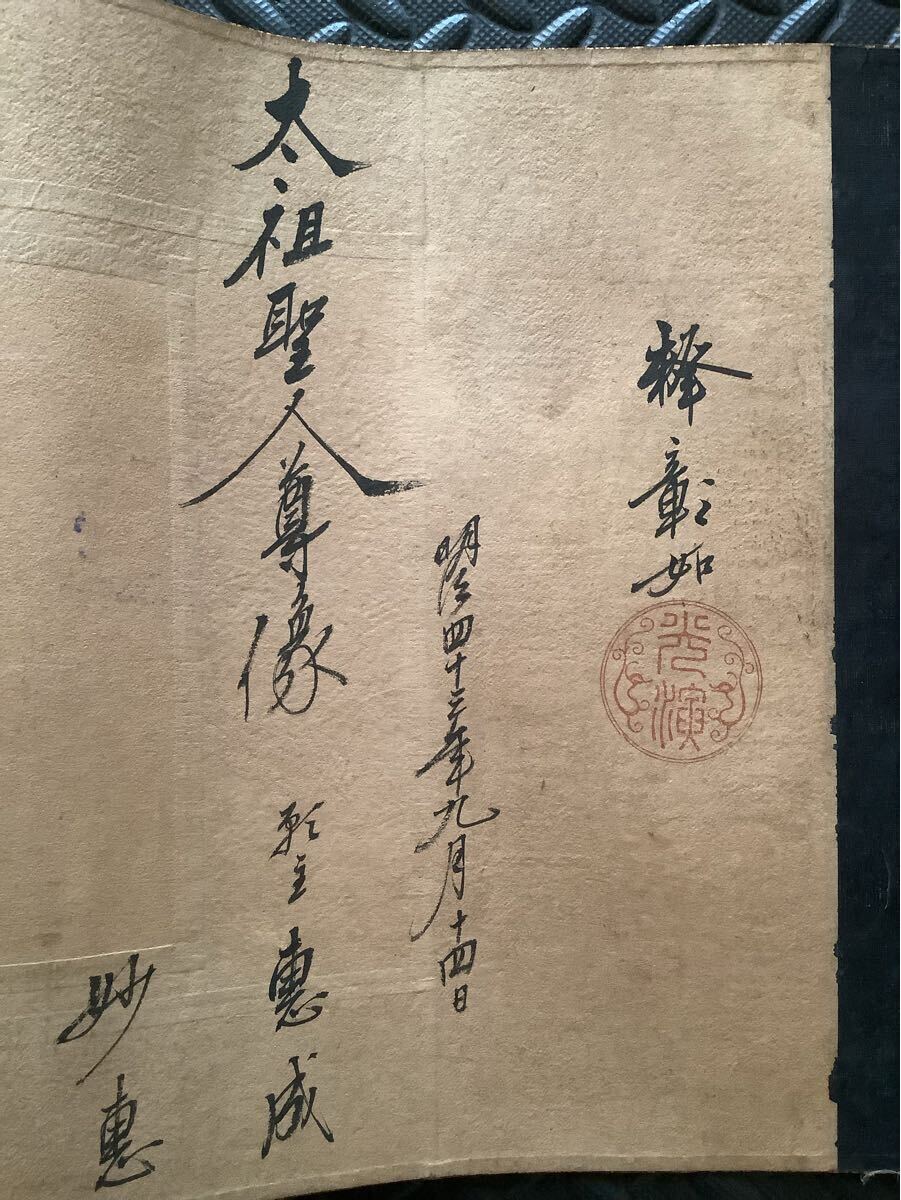 釋彰如
光演
明治四十三年九月十四日
太祖聖人尊像
願主 惠成
妙惠